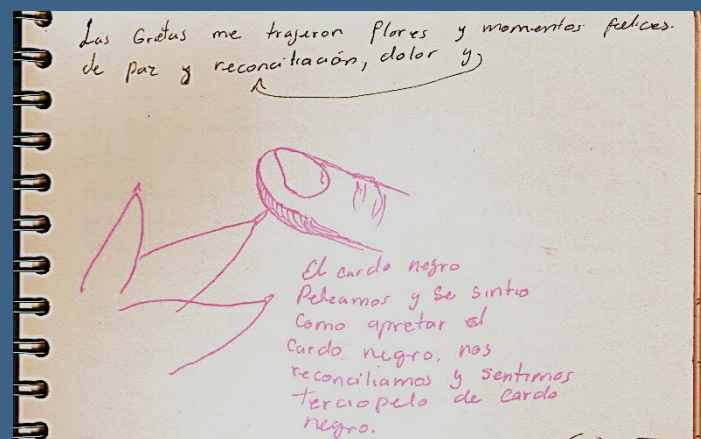 Las Grietas me trajeron flores y momentos felices.
de paz y reconciliación, dolor y
El cardo negro
Peleamos y se sintio
como apretar el
cardo negro. nos
reconciliamos y sentimos
terciopelo de cardo
negro.